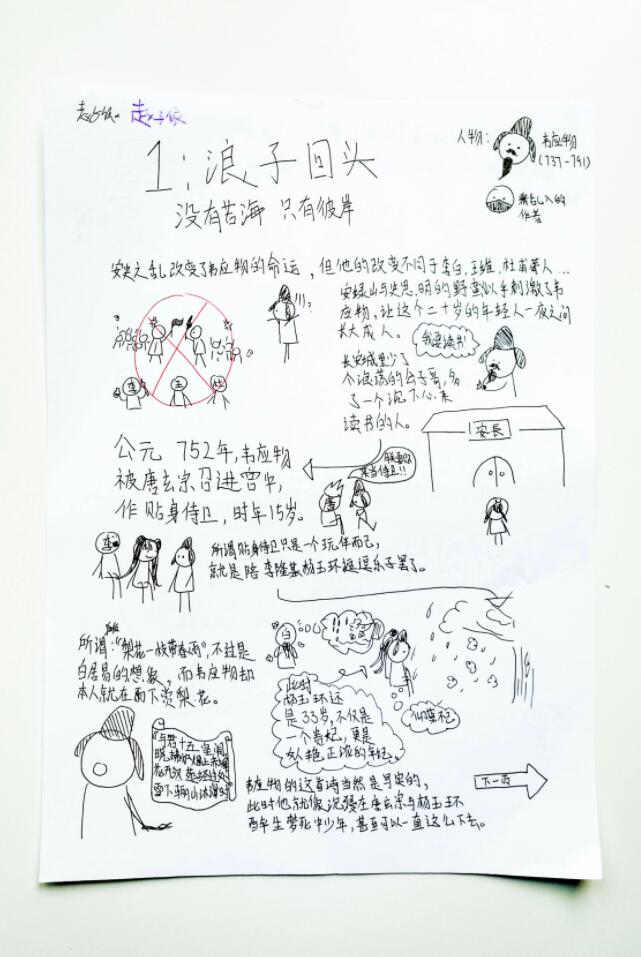 1:浪子回头
没有苦海 只有彼岸
人物:
韦应物
(737-791)
乱入的
作者
安史之乱改变了韦应物的命运,但他的改变不同于李白,王维,杜甫等人...
安绿山与史思明的野蛮以 刺激了韦
应物,让这个二十岁的年轻人一夜之间
长大成人。
我要读书
长安城里少了
个浪荡的公子哥,多
了一个沉下心来
读书的人。
李
王
杜
???
安長
公元 752年,韦应物
被唐玄宗召进宫中,
作贴身侍卫,时年15岁。
朕要你
来当侍卫!!
唐
李
所谓贴身侍卫只是一个玩伴而已,
就是陪李隆基杨玉环逗乐子罢了。
所谓:“梨花一枝带春雨”,不过是
白居易的想象,而韦应物却
本人就在雨下赏梨花。
白
此时
杨玉环还
是33岁,不仅是
一个贵妃,更是
女人艳正浓的年纪。
与君十五侍皇闱
晓拂炉烟上赤墀
花开汉苑经过处
雪下骊山沐浴时
韦应物的这首诗当然是写实的,
此时他就像沉浸在唐玄宗与杨玉环
醉生梦死中少年,甚至可以一直这么下去。
下一页